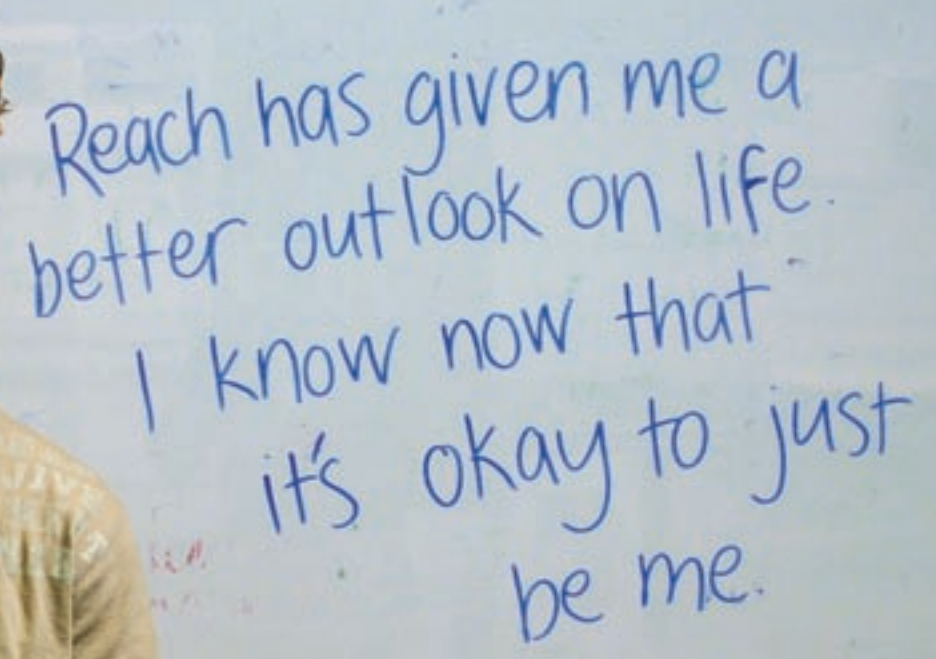 Reach has given me a
better outlook on life.
I know now that
it's okay to just
be me.